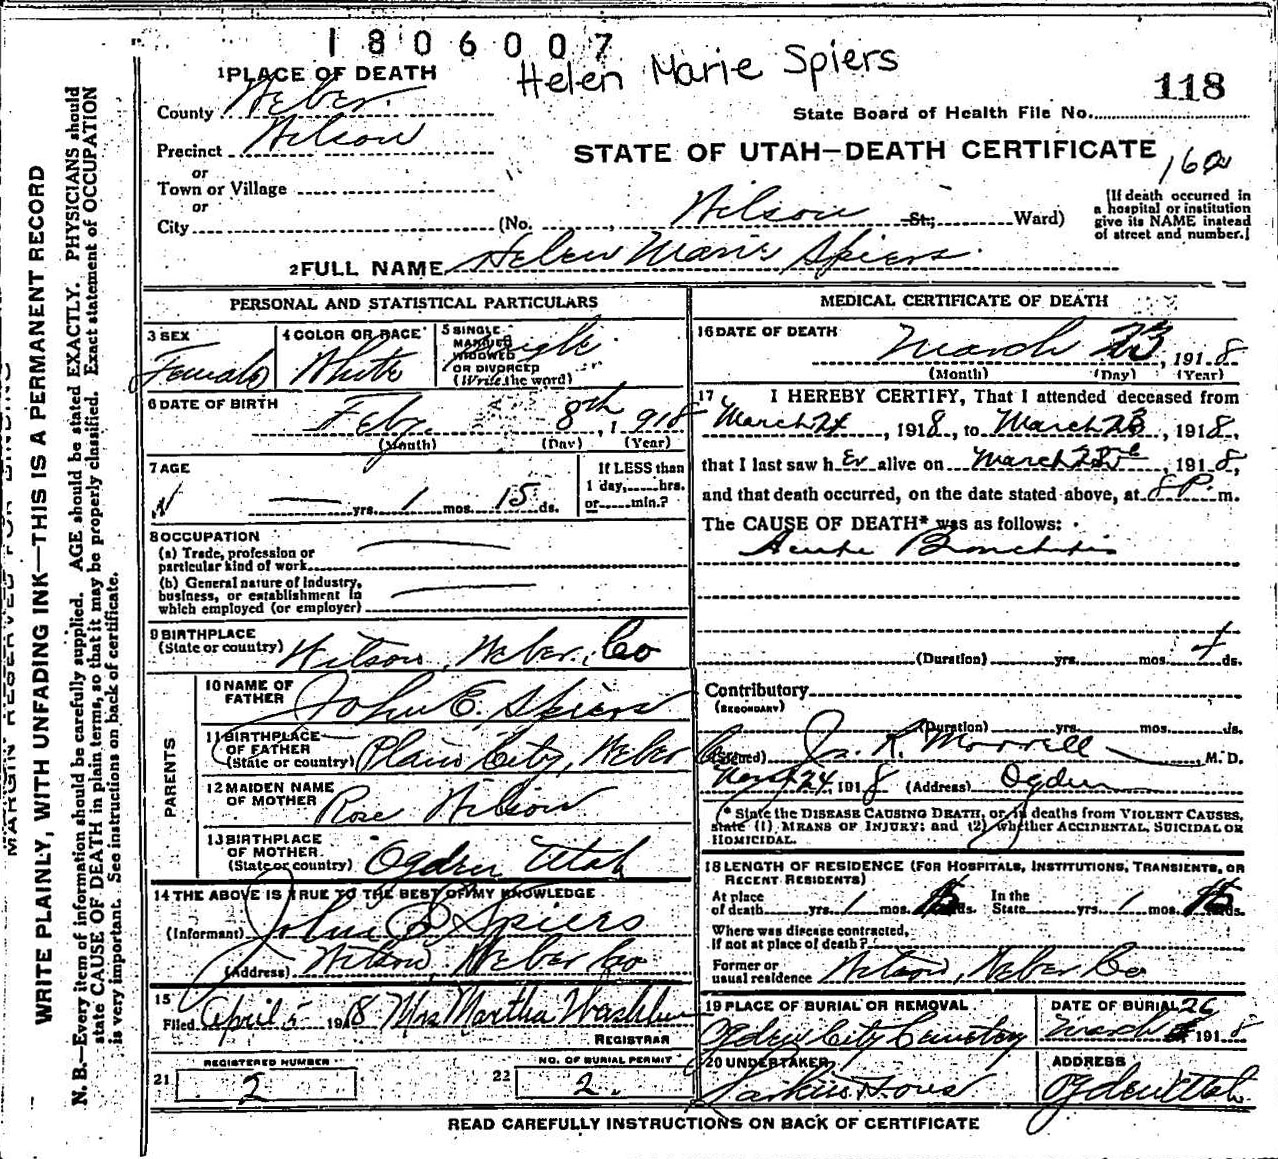 1806007
Helen Marie Spiers
118
1 PLACE OF DEATH
County Weber
State Board of Health File No.
Precinct Wilson
STATE OF UTAH—DEATH CERTIFICATE
162
or
Town or Village
or
City
(No. , Wilson St; Ward)
[If death occurred in
a hospital or institution
give its NAME instead
of street and number.]
2 FULL NAME Helen Marie Spiers
PERSONAL AND STATISTICAL PARTICULARS
3 SEX
Female
4 COLOR OR RACE
White
5 SINGLE
MARRIED
WIDOWED
OR DIVORCED
(Write the word)
Single
6 DATE OF BIRTH
Feby 8th, 1918
(Month) (Day) (Year)
7 AGE
yrs. 1 mos. 15 ds.
If LESS than
1 day, hrs.
or min.?
8 OCCUPATION
(a) Trade, profession or
particular kind of work
(b) General nature of industry,
business, or establishment in
which employed (or employer)
9 BIRTHPLACE
(State or country) Wilson, Weber, Co
PARENTS
10 NAME OF
FATHER John E. Spiers
11 BIRTHPLACE
OF FATHER
(State or country) Plain City, Weber Co
12 MAIDEN NAME
OF MOTHER Rose Wilson
13 BIRTHPLACE
OF MOTHER.
(State or country) Ogden Utah
14 THE ABOVE IS TRUE TO THE BEST OF MY KNOWLEDGE
(Informant) John E Spiers
(Address) Wilson, Weber Co
15
Filed April 5 1918 Mrs Martha Washburn
REGISTRAR
REGISTERED NUMBER
21 2
NO. OF BURIAL PERMIT
22 2.
MEDICAL CERTIFICATE OF DEATH
16 DATE OF DEATH
March 23, 1918
(Month) (Day) (Year)
17 I HEREBY CERTIFY, That I attended deceased from
March 24, 1918, to March 23, 1918,
that I last saw h er alive on March 23rd, 1918,
and that death occurred, on the date stated above, at 8 P. m.
The CAUSE OF DEATH* was as follows:
Acute Bronchitis
(Duration) yrs. mos. ds.
Contributory
(SECONDARY)
(Duration) yrs. mos. ds.
(Signed) Jos. R. Morrell, M. D.
March 24, 1918 (Address) Ogden
* State the DISEASE CAUSING DEATH, or, in deaths from VIOLENT CAUSES,
state (1) MEANS OF INJURY; and (2) whether ACCIDENTAL, SUICIDAL OR
HOMICIDAL.
18 LENGTH OF RESIDENCE (FOR HOSPITALS, INSTITUTIONS, TRANSIENTS, OR
RECENT RESIDENTS)
At place
of death yrs. 1 mos. 15 ds.
In the
State yrs. 1 mos. 15 ds.
Where was disease contracted,
if not at place of death?
Former or
usual residence Wilson, Weber Co
19 PLACE OF BURIAL OR REMOVAL
Ogden City Cemetery
DATE OF BURIAL
March 26 1918
20 UNDERTAKER
Larkin & Sons
ADDRESS
Ogden Utah
READ CAREFULLY INSTRUCTIONS ON BACK OF CERTIFICATE
MARGIN RESERVED FOR BINDING
WRITE PLAINLY, WITH UNFADING INK—THIS IS A PERMANENT RECORD
N. B.—Every item of information should be carefully supplied. AGE should be stated EXACTLY. PHYSICIANS should
state CAUSE OF DEATH in plain terms, so that it may be properly classified. Exact statement of OCCUPATION
is very important. See instructions on back of certificate.